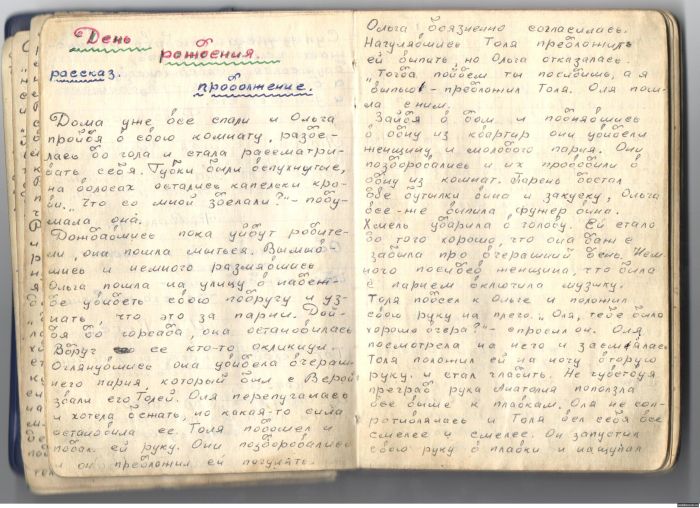 День
рождения.
рассказ.
продолжение.
Дома уже все спали и Ольга
пройдя в свою комнату, разде-
лась до гола и стала рассматри-
вать себя. Губки были вспухнутые,
на волосах остались капельки кро-
ви. „Что со мной зделали?" – поду-
мала она.
Дождавшись пока уйдут родите-
ли, она пошла мыться. Вымыв-
шись и немного размявшись
Ольга пошла на улицу, а
увидеть свою подругу и уз-
нать, что это за парни. Дой-
дя до она остановилась
Вдруг ее кто-то окликнул.
Оглянувшись она увидела вчераш-
него парня, который был с Верой
звали его Толей. Оля перепугалась
и хотела бежать, но какая-то сила
остановила ее. Толя подошел и
подал ей руку. Они поздоровались
и он предложил ей погулять.
Ольга боязненно согласилась.
Нагулявшись Толя предложил
ей выпить, но Ольга отказалась.
„Тогда пойдем ты посидишь, а я
выпью" – предложил Толя. Оля пош-
ла с ним.
Зайдя в дом и поднявшись
в одну из квартир они увидели
женщину и молодого парня. Они
поздоровались и их проводили в
одну из комнат. Парень достал
две бутылки вина и закуску, Ольга
все-же выпила фужер вина.
Хмель ударила в голову. Ей стало
до того хорошо, что она даже
забыла про вчерашний день. Нем-
ного посидев женщина, что была
с парнем включила музыку.
Толя подсел к Ольге и положил
свою руку на плечо. „Оля, тебе было
хорошо вчера?" – спросил он. Оля
посмотрела на него и засмеялась
Толя положил ей на ногу вторую
руку и стал гладить. Не чувствуя
преград рука Анатолия поползла
все выше к плавкам. Оля не соп-
ротивлялась и Толя вел себя все
смелее и смелее. Он запустил
свою руку в плавки и нащупал